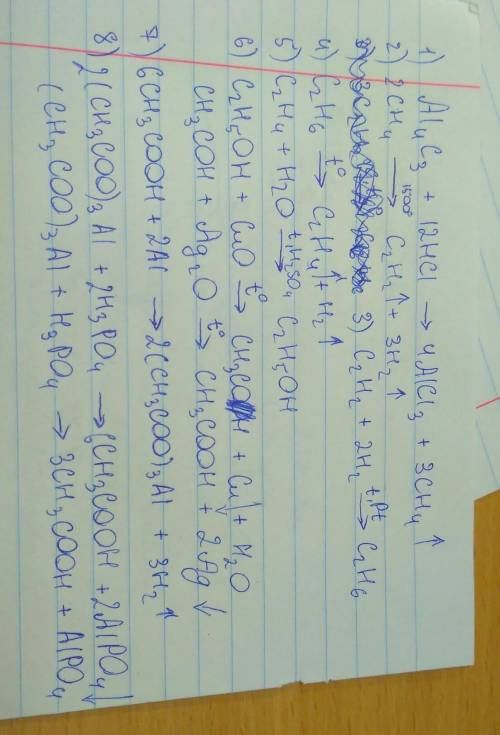 1) Al₄C₃ + 12HCl → 4AlCl₃ + 3CH₄↑
2) 2CH₄ →(1500°) C₂H₂↑ + 3H₂↑
3) C₂H₂ + 2H₂ →(t, Pt) C₂H₆
4) C₂H₆ →(t°) C₂H₄↑ + H₂↑
5) C₂H₄ + H₂O →(t, H₂SO₄) C₂H₅OH
6) C₂H₅OH + CuO →(t°) CH₃COH + Cu↓ + H₂O
CH₃COH + Ag₂O →(t°) CH₃COOH + 2Ag↓
7) 6CH₃COOH + 2Al → 2(CH₃COO)₃Al + 3H₂↑
8) 2(CH₃COO)₃Al + 2H₃PO₄ → 6CH₃COOH + 2AlPO₄↓
(CH₃COO)₃Al + H₃PO₄ → 3CH₃COOH + AlPO₄